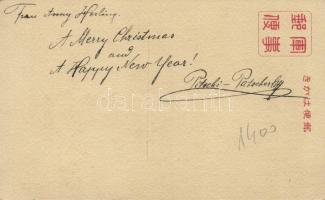 Frau Anny Harling.
A Merry Christmas
and
A Happy New Year!
軍事
郵便
きかは便郵
1400